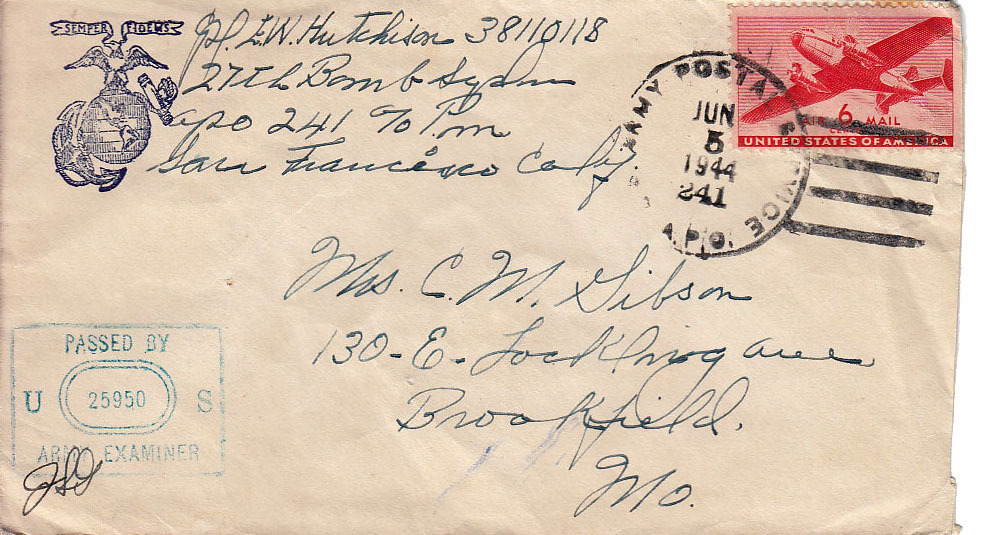 SEMPER FIDELIS
Pfc. E.W. Hutchison 38110118
27th Bomb Sqdn
apo 241 % P.m
San Francisco Calif.
ARMY POSTAL SERVICE
JUN
5
1944
241
A.P.O.
AIR 6 MAIL
CENTS
UNITED STATES OF AMERICA
Mrs. C. M. Gibson
130-E-Lockling ave
Brookfield.
Mo.
PASSED BY
U 25950 S
ARMY EXAMINER